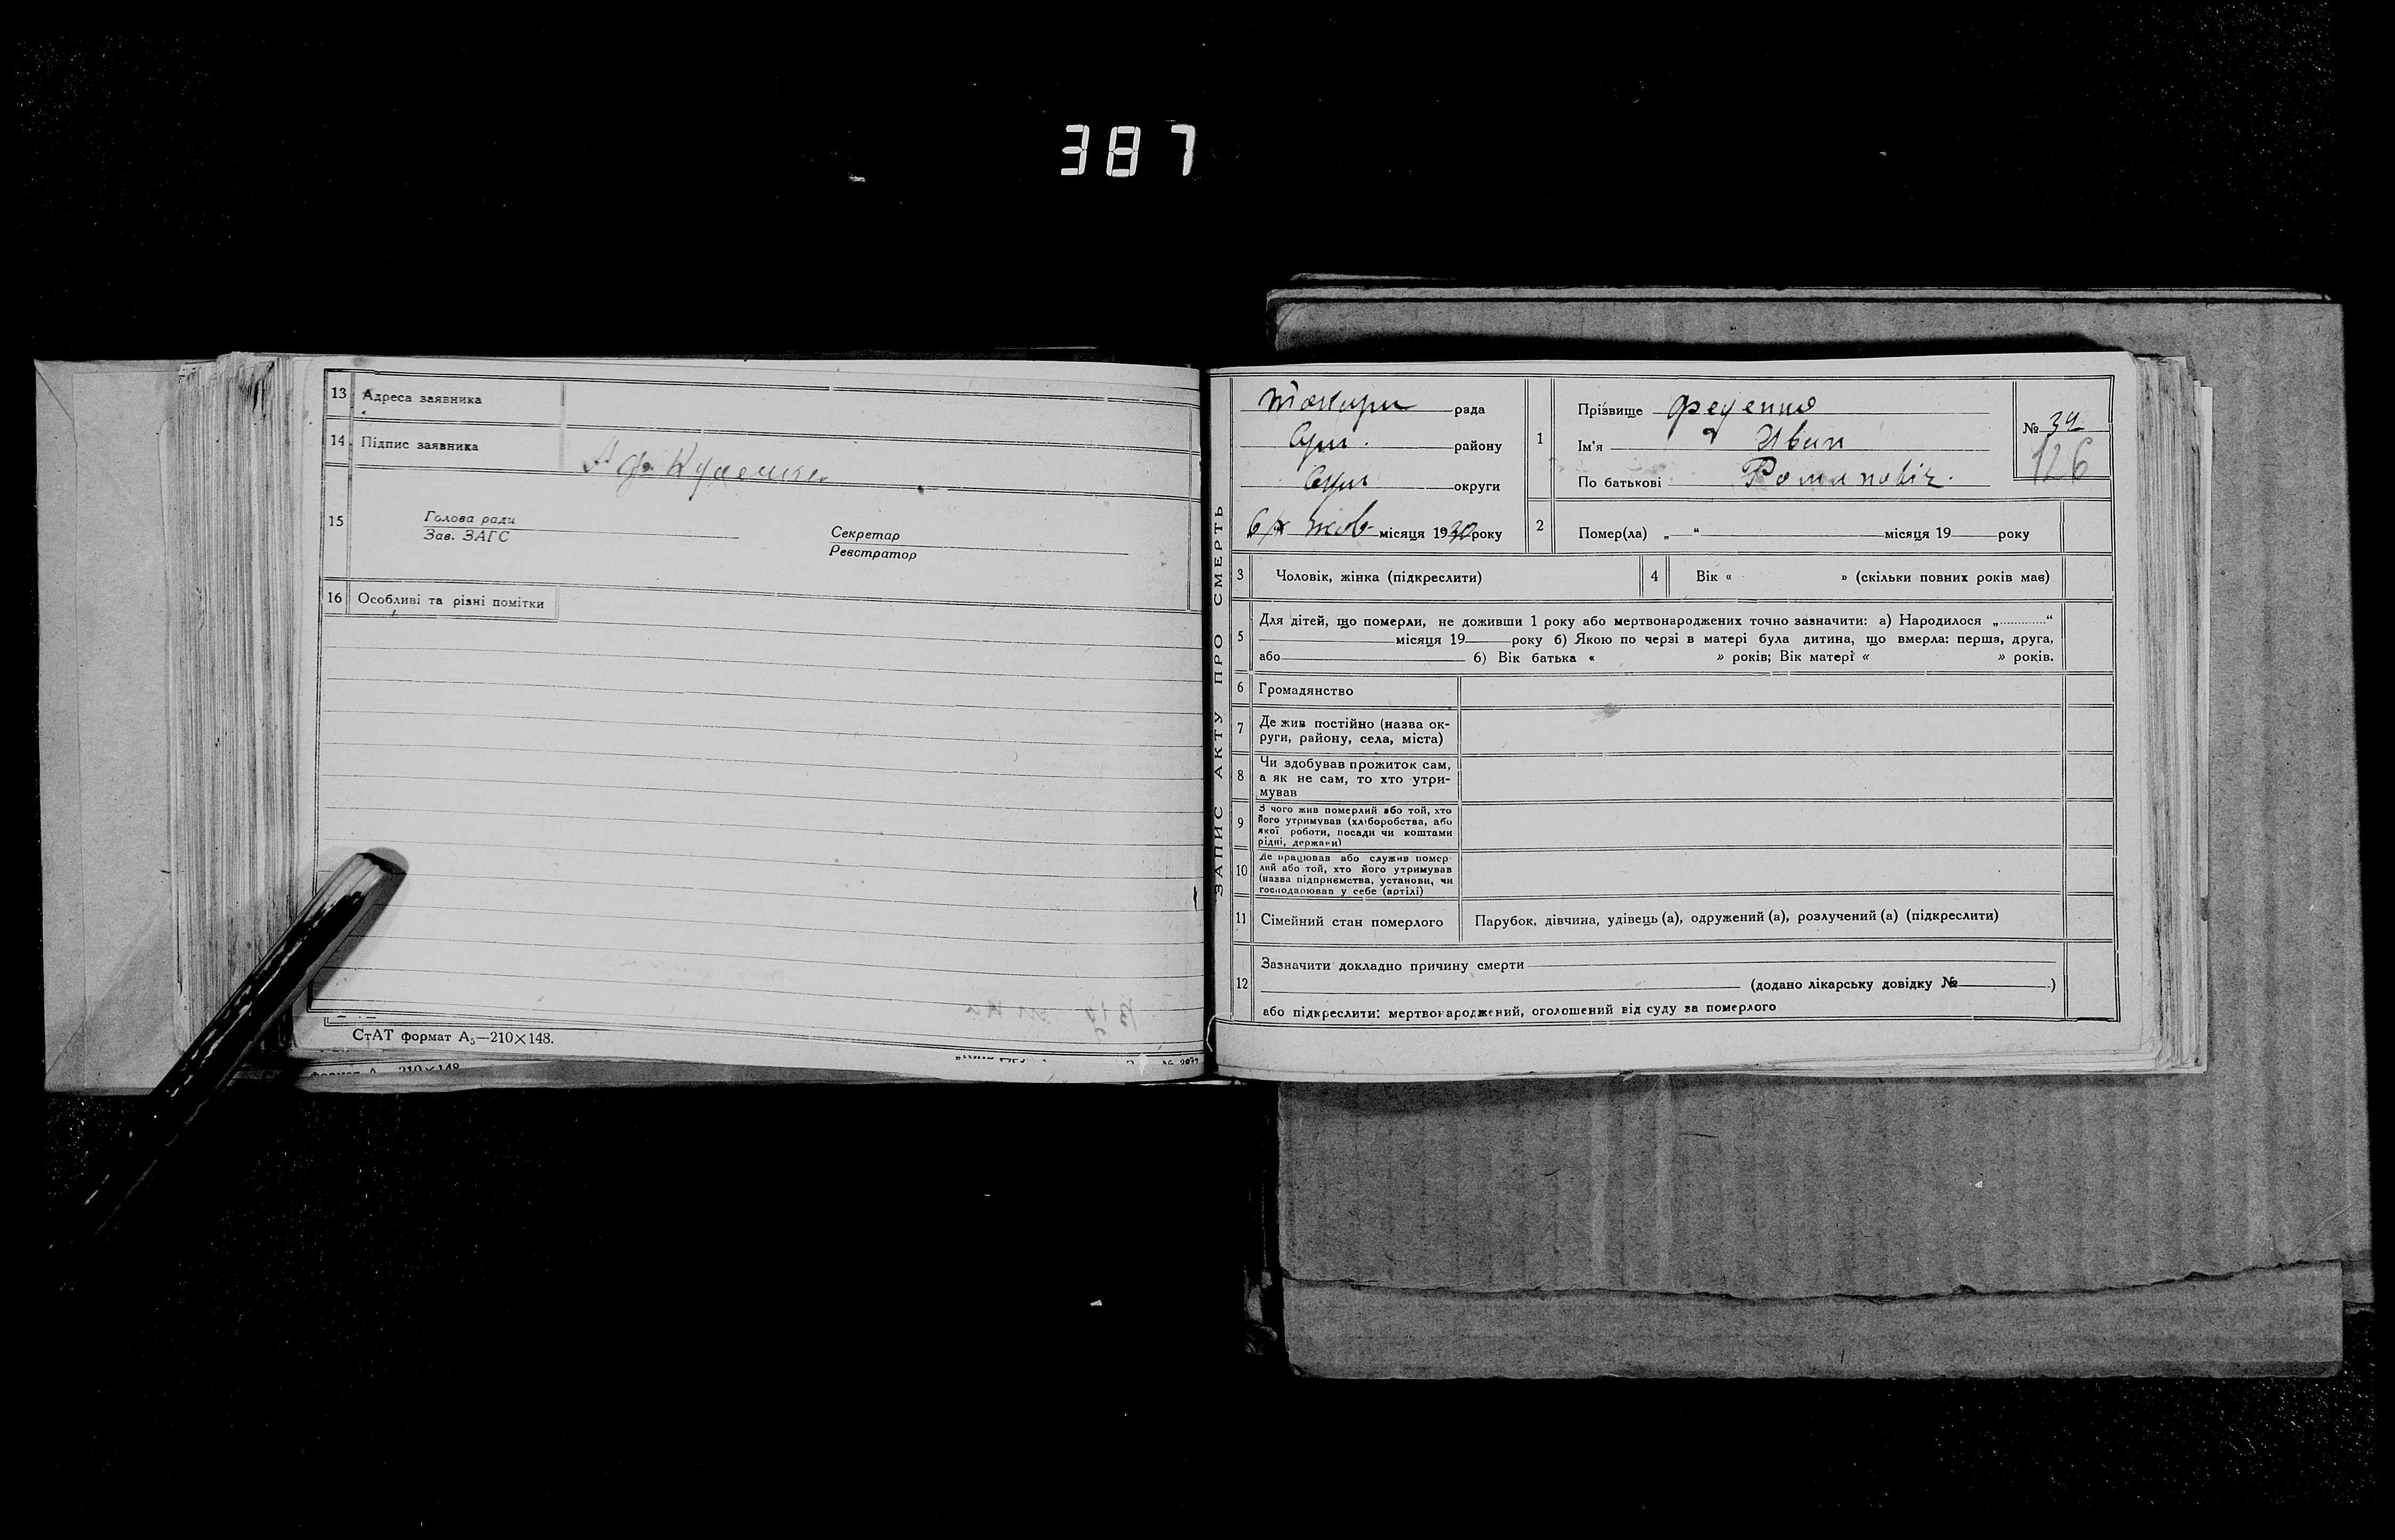 387
13 Адреса заявника
14 Підпис заявника
15 Голова ради
Зав. ЗАГС
Секретар
Реєстратор
16 Особливі та різні помітки
СтАТ формат А₅—210×148.
формат А 210×148
ЗАПИС АКТУ ПРО СМЕРТЬ
Токари рада
Сум. району
Сум округи
6/х жов місяця 1930 року
1 Прізвище Феденко
Ім'я Иван
По батькові Романовіч.
№ 39
126
2 Помер(ла) „ “ місяця 19 року
3 Чоловік, жінка (підкреслити)
4 Вік « » (скільки повних років має)
5 Для дітей, що померли, не доживши 1 року або мертвонароджених точно зазначити: а) Народилося „............“
місяця 19 року б) Якою по черзі в матері була дитина, що вмерла: перша, друга,
або б) Вік батька « » років; Вік матері « » років.
6 Громадянство
7 Де жив постійно (назва ок-
руги, району, села, міста)
8 Чи здобував прожиток сам,
а як не сам, то хто утри-
мував
9 З чого жив померлий або той, хто
його утримував (хліборобства, або
якої роботи, посади чи коштами
рідні, держави)
10 Де працював або служив помер-
лий або той, хто його утримував
(назва підприємства, установи, чи
господарював у себе (артілі)
11 Сімейний стан померлого Парубок, дівчина, удівець (а), одружений (а), розлучений (а) (підкреслити)
12 Зазначити докладно причину смерти
(додано лікарську довідку № )
або підкреслити: мертвонароджений, оголошений від суду за померлого